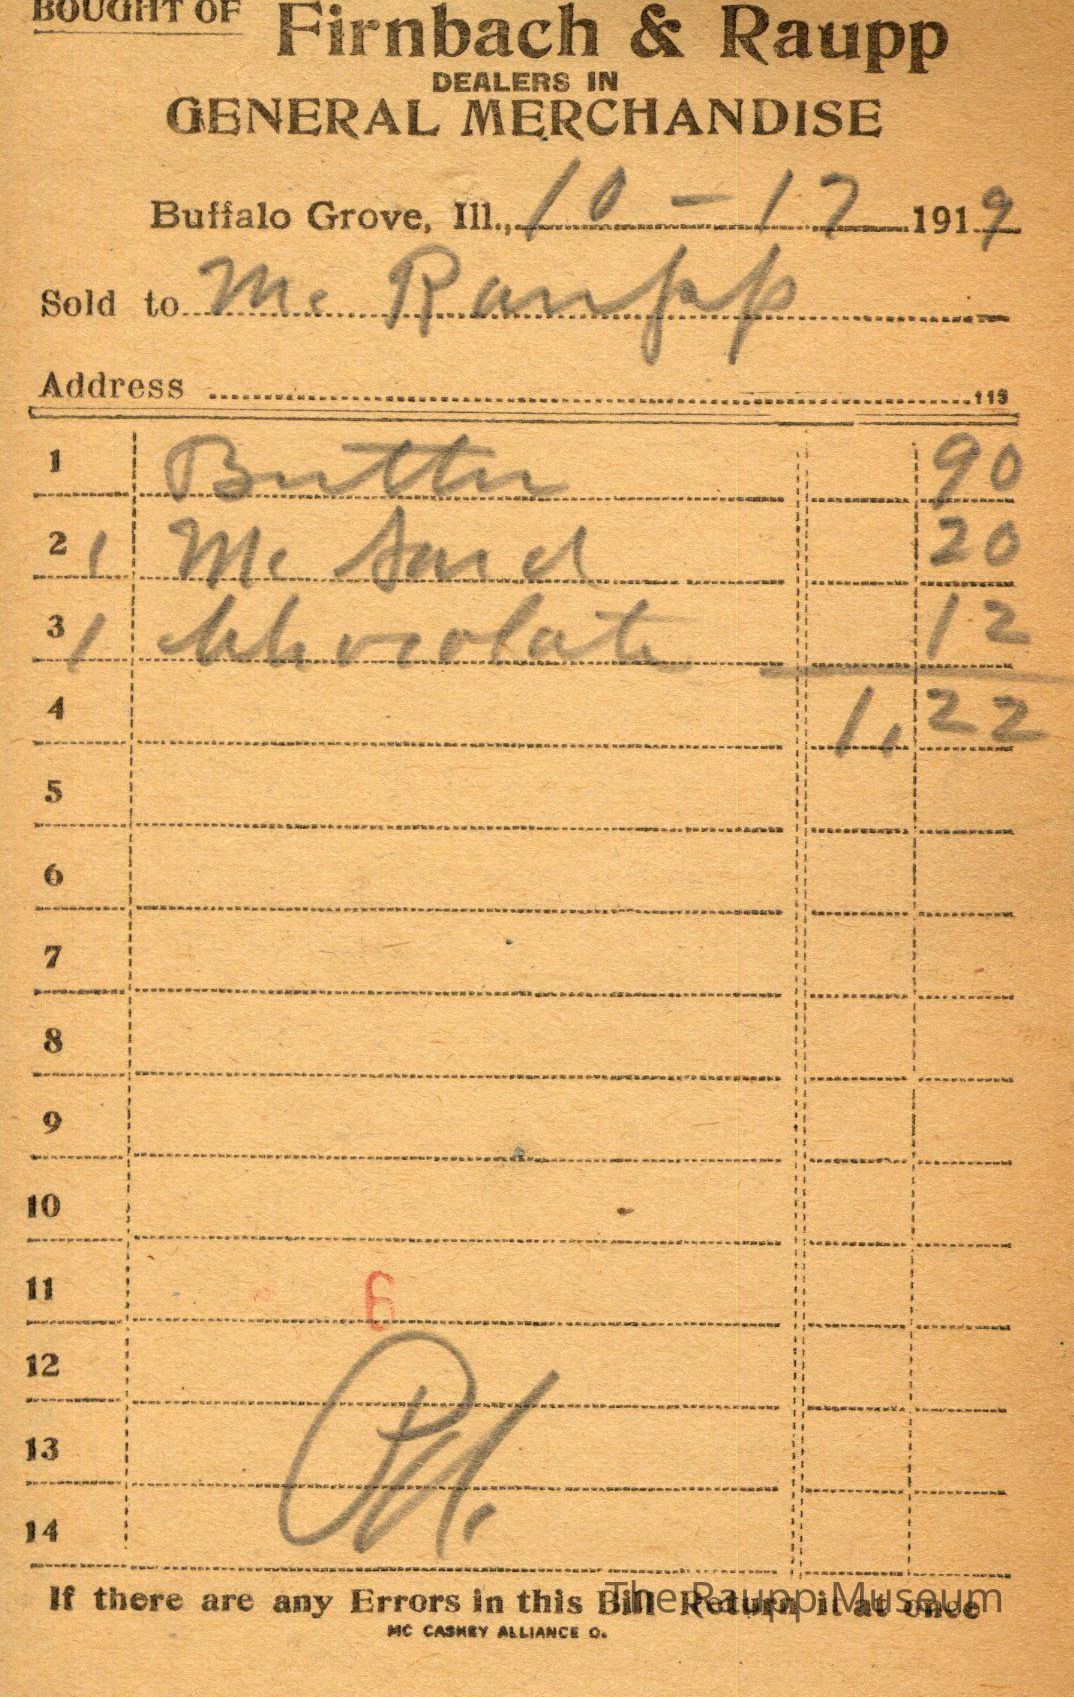 BOUGHT OF
Firnbach & Raupp
DEALERS IN
GENERAL MERCHANDISE
Buffalo Grove, Ill., 10 - 17 1919
Sold to Mc Raupp
Address 113
1 Butter 90
2 1 Mc 20
3 1 Chocolate 12
4 1,22
5
6
7
8
9
10
11 6
12
13 Pd.
14
If there are any Errors in this Bill Return it at once
The Raupp Museum
MC CASKEY ALLIANCE O.